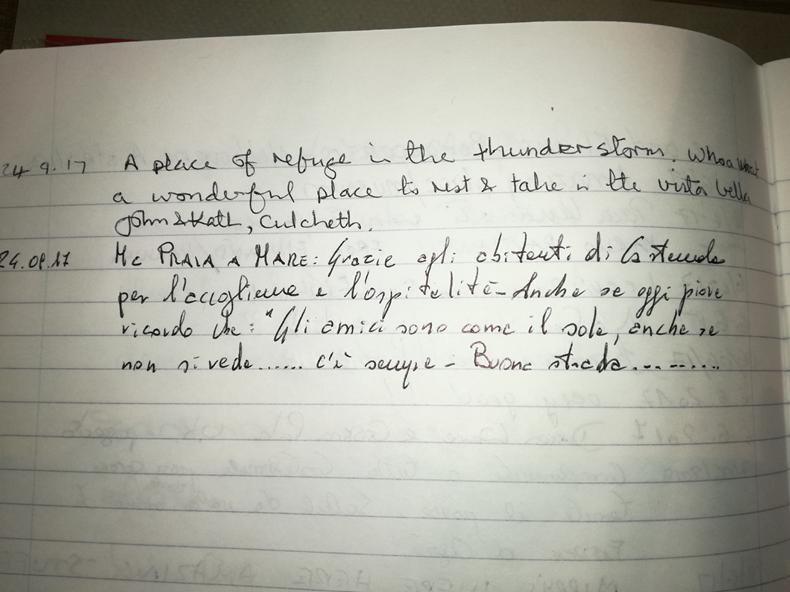 24.9.17 A place of refuge in the thunder storm. Whoa what
a wonderful place to rest & take in the vista bella
John & Kath, Culcheth.
24.09.17 MC PRAIA A MARE: Grazie agli abitanti di
per l'accoglienza e l'ospitalità - Anche se oggi piove
ricordo che: "Gli amici sono come il sole, anche se
non si vede...... c'è sempre - Buona strada..........